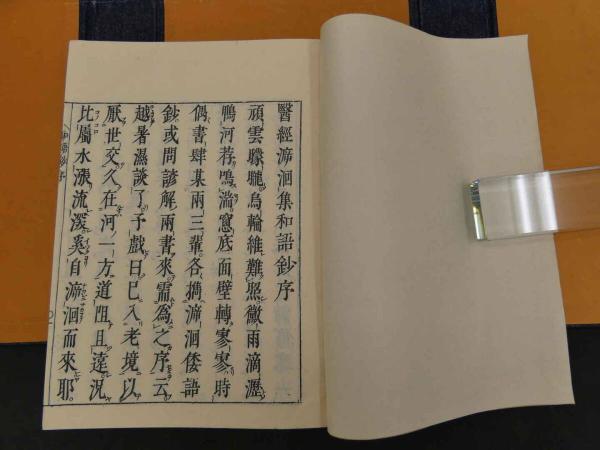 醫經溯洄集和語鈔序
頑雲朦朧烏輪維難照黴雨滴瀝
鴨河荐鳴湍窻底面壁轉寥寥時
偶書肆某兩三輩各擕溯洄倭語
鈔或問諺解兩書來需為之序云
越暑濕談了予戲曰已入老境以
厭世交久在河一方道阻且遠況
比屬水漲流濲奚自溯洄而來耶